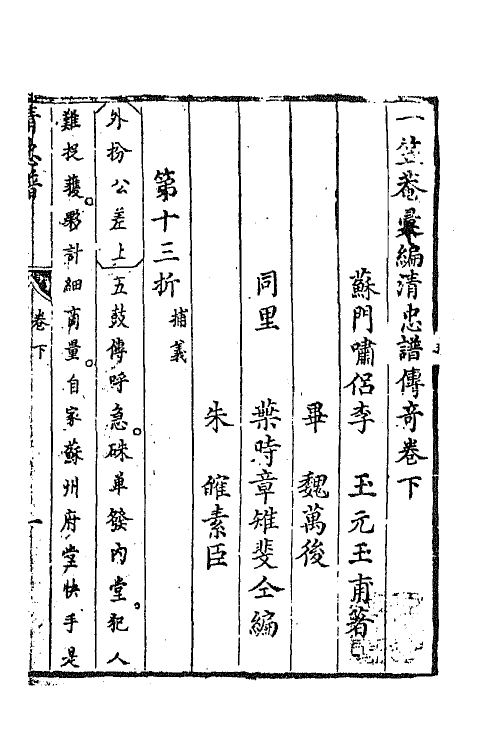 一笠菴彙編清忠譜傳奇卷下
蘇門嘯侶李 玉元玉甫著
畢 魏萬後
同里 葉時章雉斐仝編
朱 㿥素臣
第十三折 捕義
外扮公差上五鼓傳呼急。硃單發內堂。犯人
難捉獲。夥計細商量。自家蘇州府堂快手是
清忠譜 卷下 一